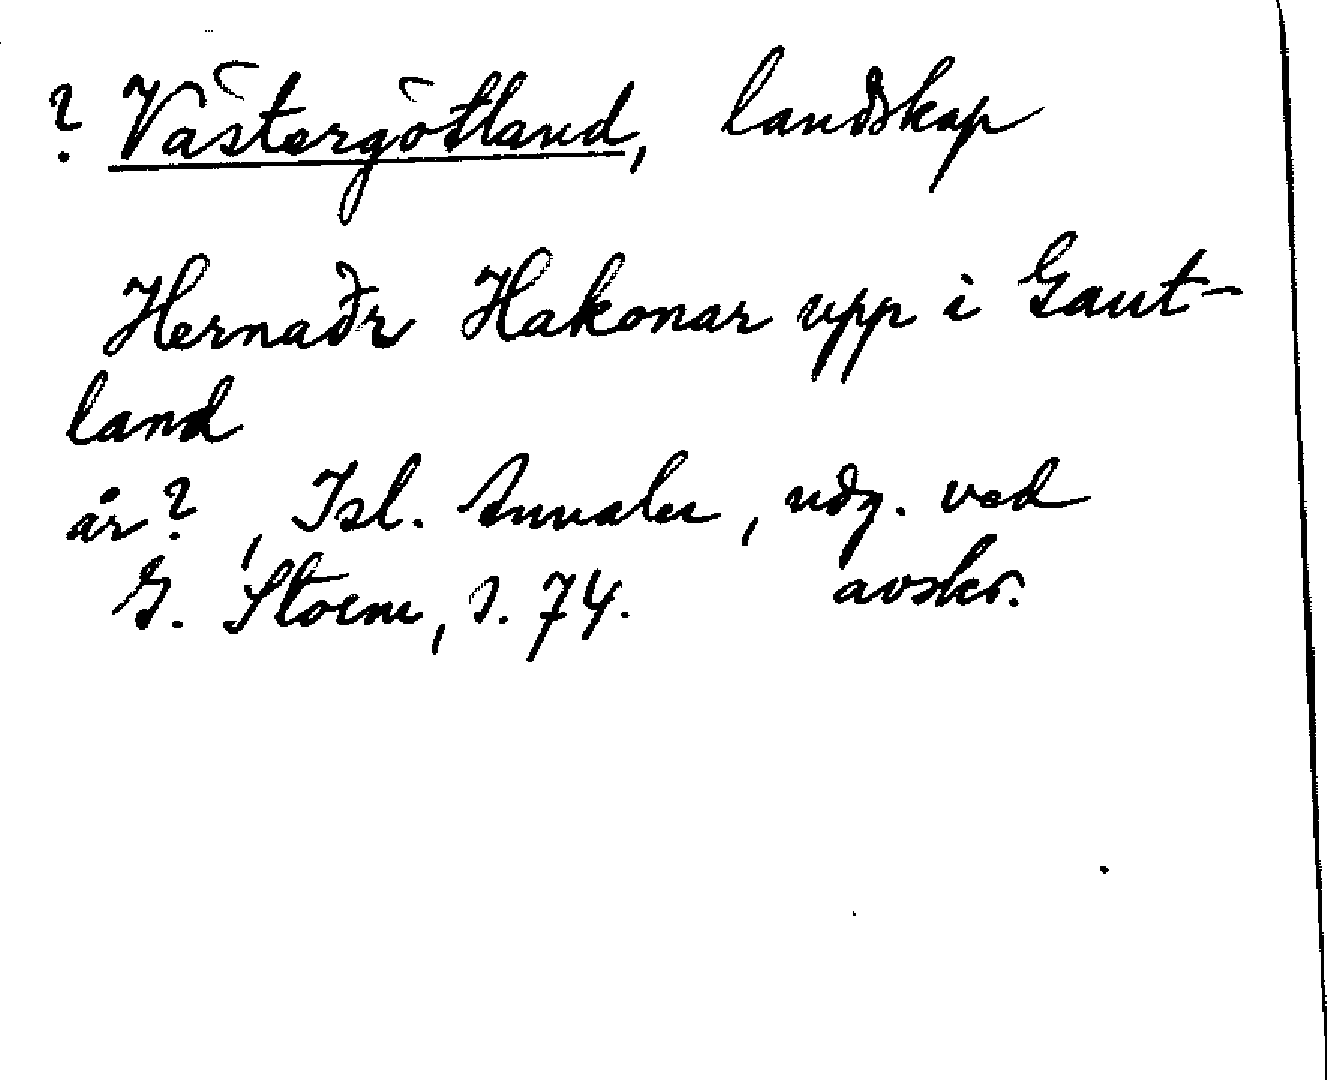 ? Västergötland, landskap
Hernaðr Hakonar upp i Gaut-
land
år?, Isl. Annaler, udg. ved
G. Storm, s. 74. avskr.